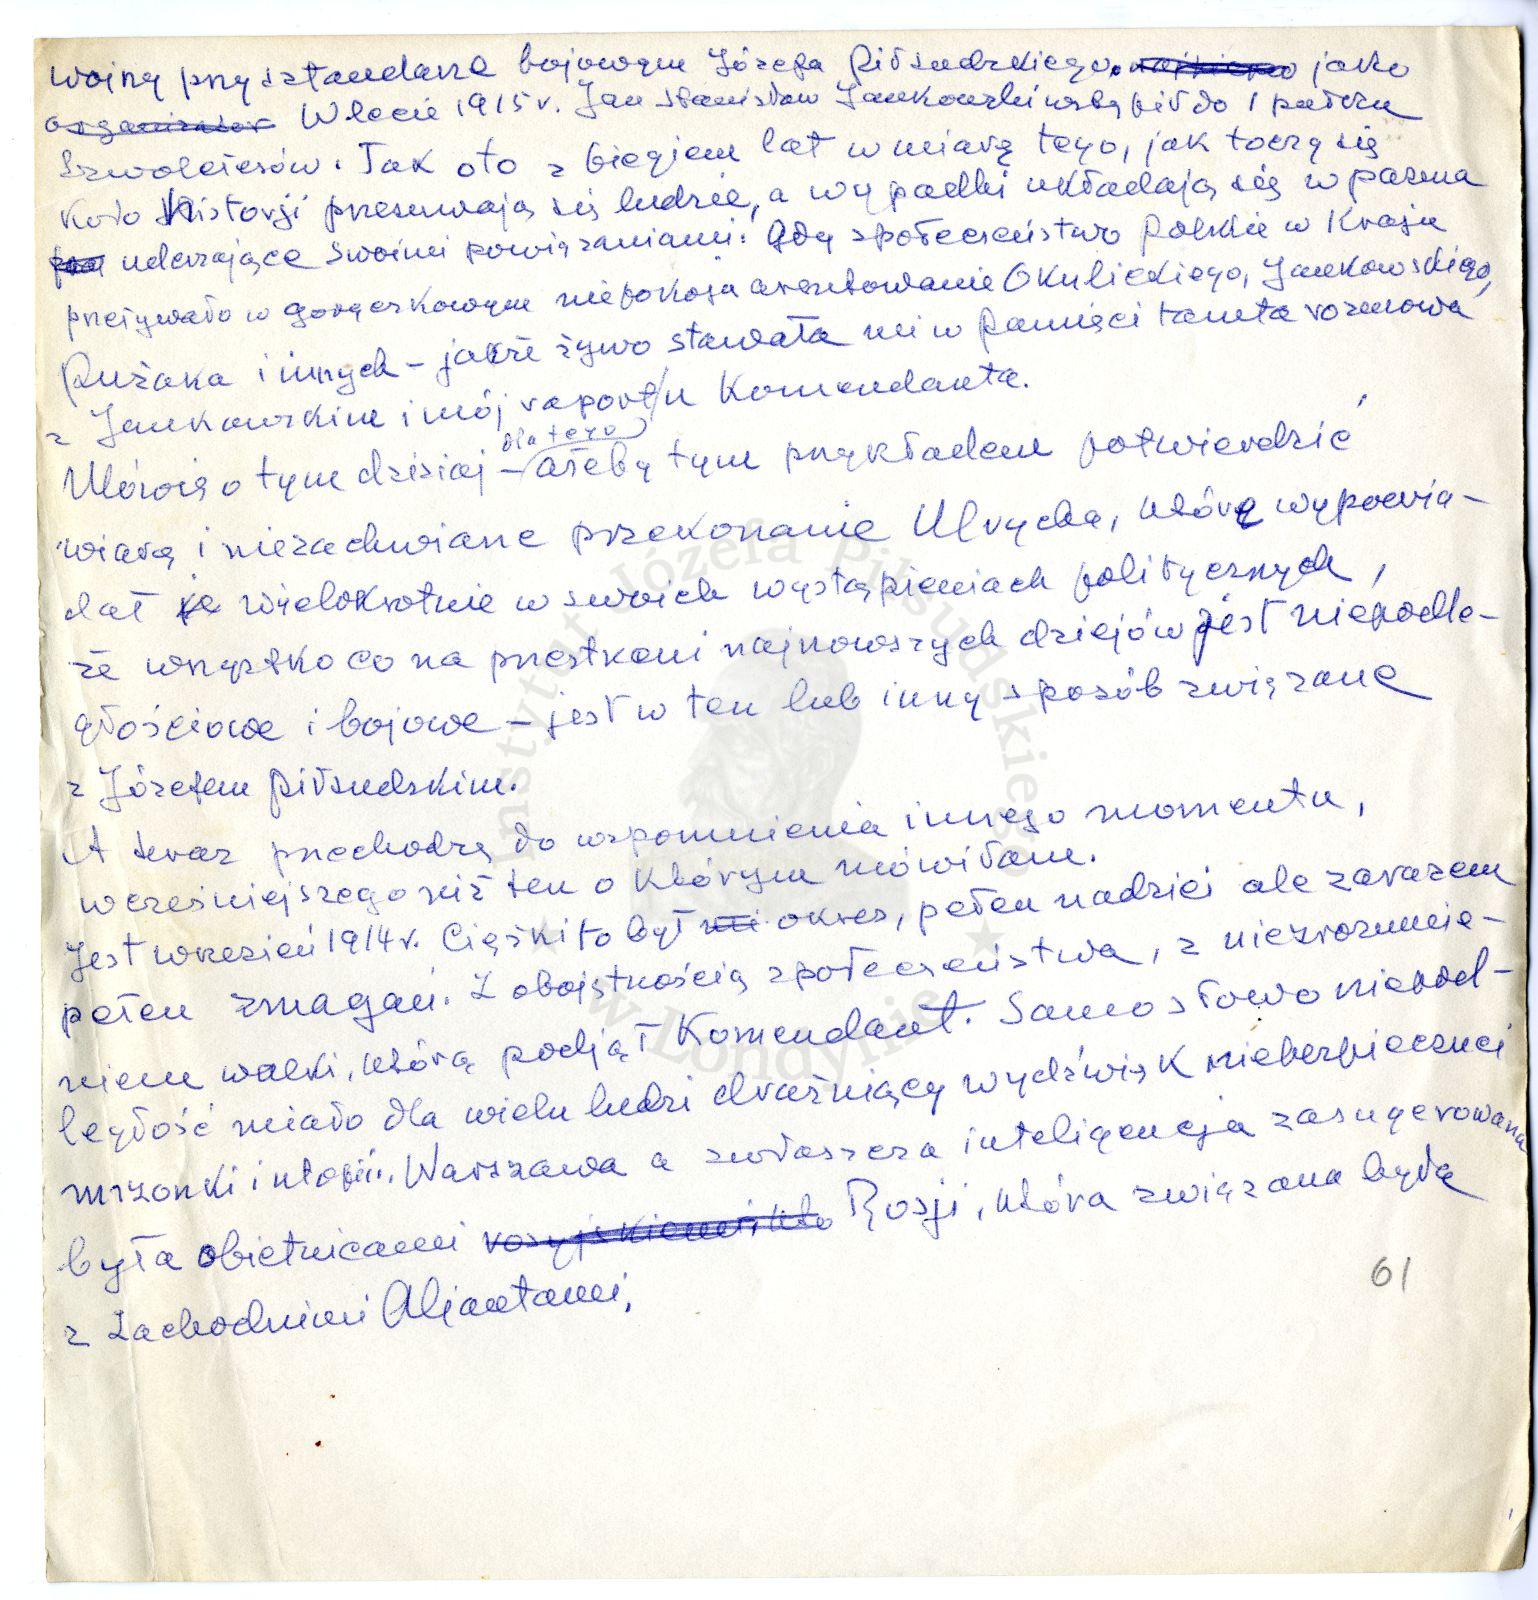 wojny przy sztandarze bojowym Józefa Piłsudskiego. jako
organizator W lecie 1915 r. Jan Stanisław Jankowski wstąpił do 1 pułku
Szwoleżerów. Tak oto z biegiem lat w miarę tego, jak toczy się
Koło Historji przesuwają się ludzie, a wypadki układają się w pasma
uderzające swoimi powiązaniami. Gdy społeczeństwo polskie w Kraju
przeżywało w gorączkowym niepokoju aresztowanie Okulickiego, Jankowskiego,
Pużaka i innych – jakże żywo stawała mi w pamięci tamta rozmowa
z Jankowskim i mój raport u Komendanta.
Mówię o tym dzisiaj – dlatego ażeby tym przykładem potwierdzić
wiarę i niezachwiane przekonanie Ulrycha, którą wypowia-
dał je wielokrotnie w swoich wystąpieniach politycznych,
że wszystko co na przestrzeni najnowszych dziejów jest niepodle-
głościowe i bojowe – jest w ten lub inny sposób związane
z Józefem Piłsudskim.
A teraz przechodzę do wspomnienia innego momentu,
wcześniejszego niż ten o którym mówiłam.
Jest wrzesień 1914 r. Ciężki to był okres, pełen nadziei ale zarazem
pełen zmagań. Z obojętnością społeczeństwa, z niezrozumie-
niem walki, którą podjął Komendant. Samo słowo niepod-
ległość miało dla wielu ludzi drażniący wydźwięk niebezpiecznej
mrzonki i utopii. Warszawa a zwłaszcza inteligencja zasugerowana
była obietnicami rosyjskiemi kto Rosji, która związana była
z Zachodnimi Aljantami,
61
Instytut Józefa Piłsudskiego
w Londynie